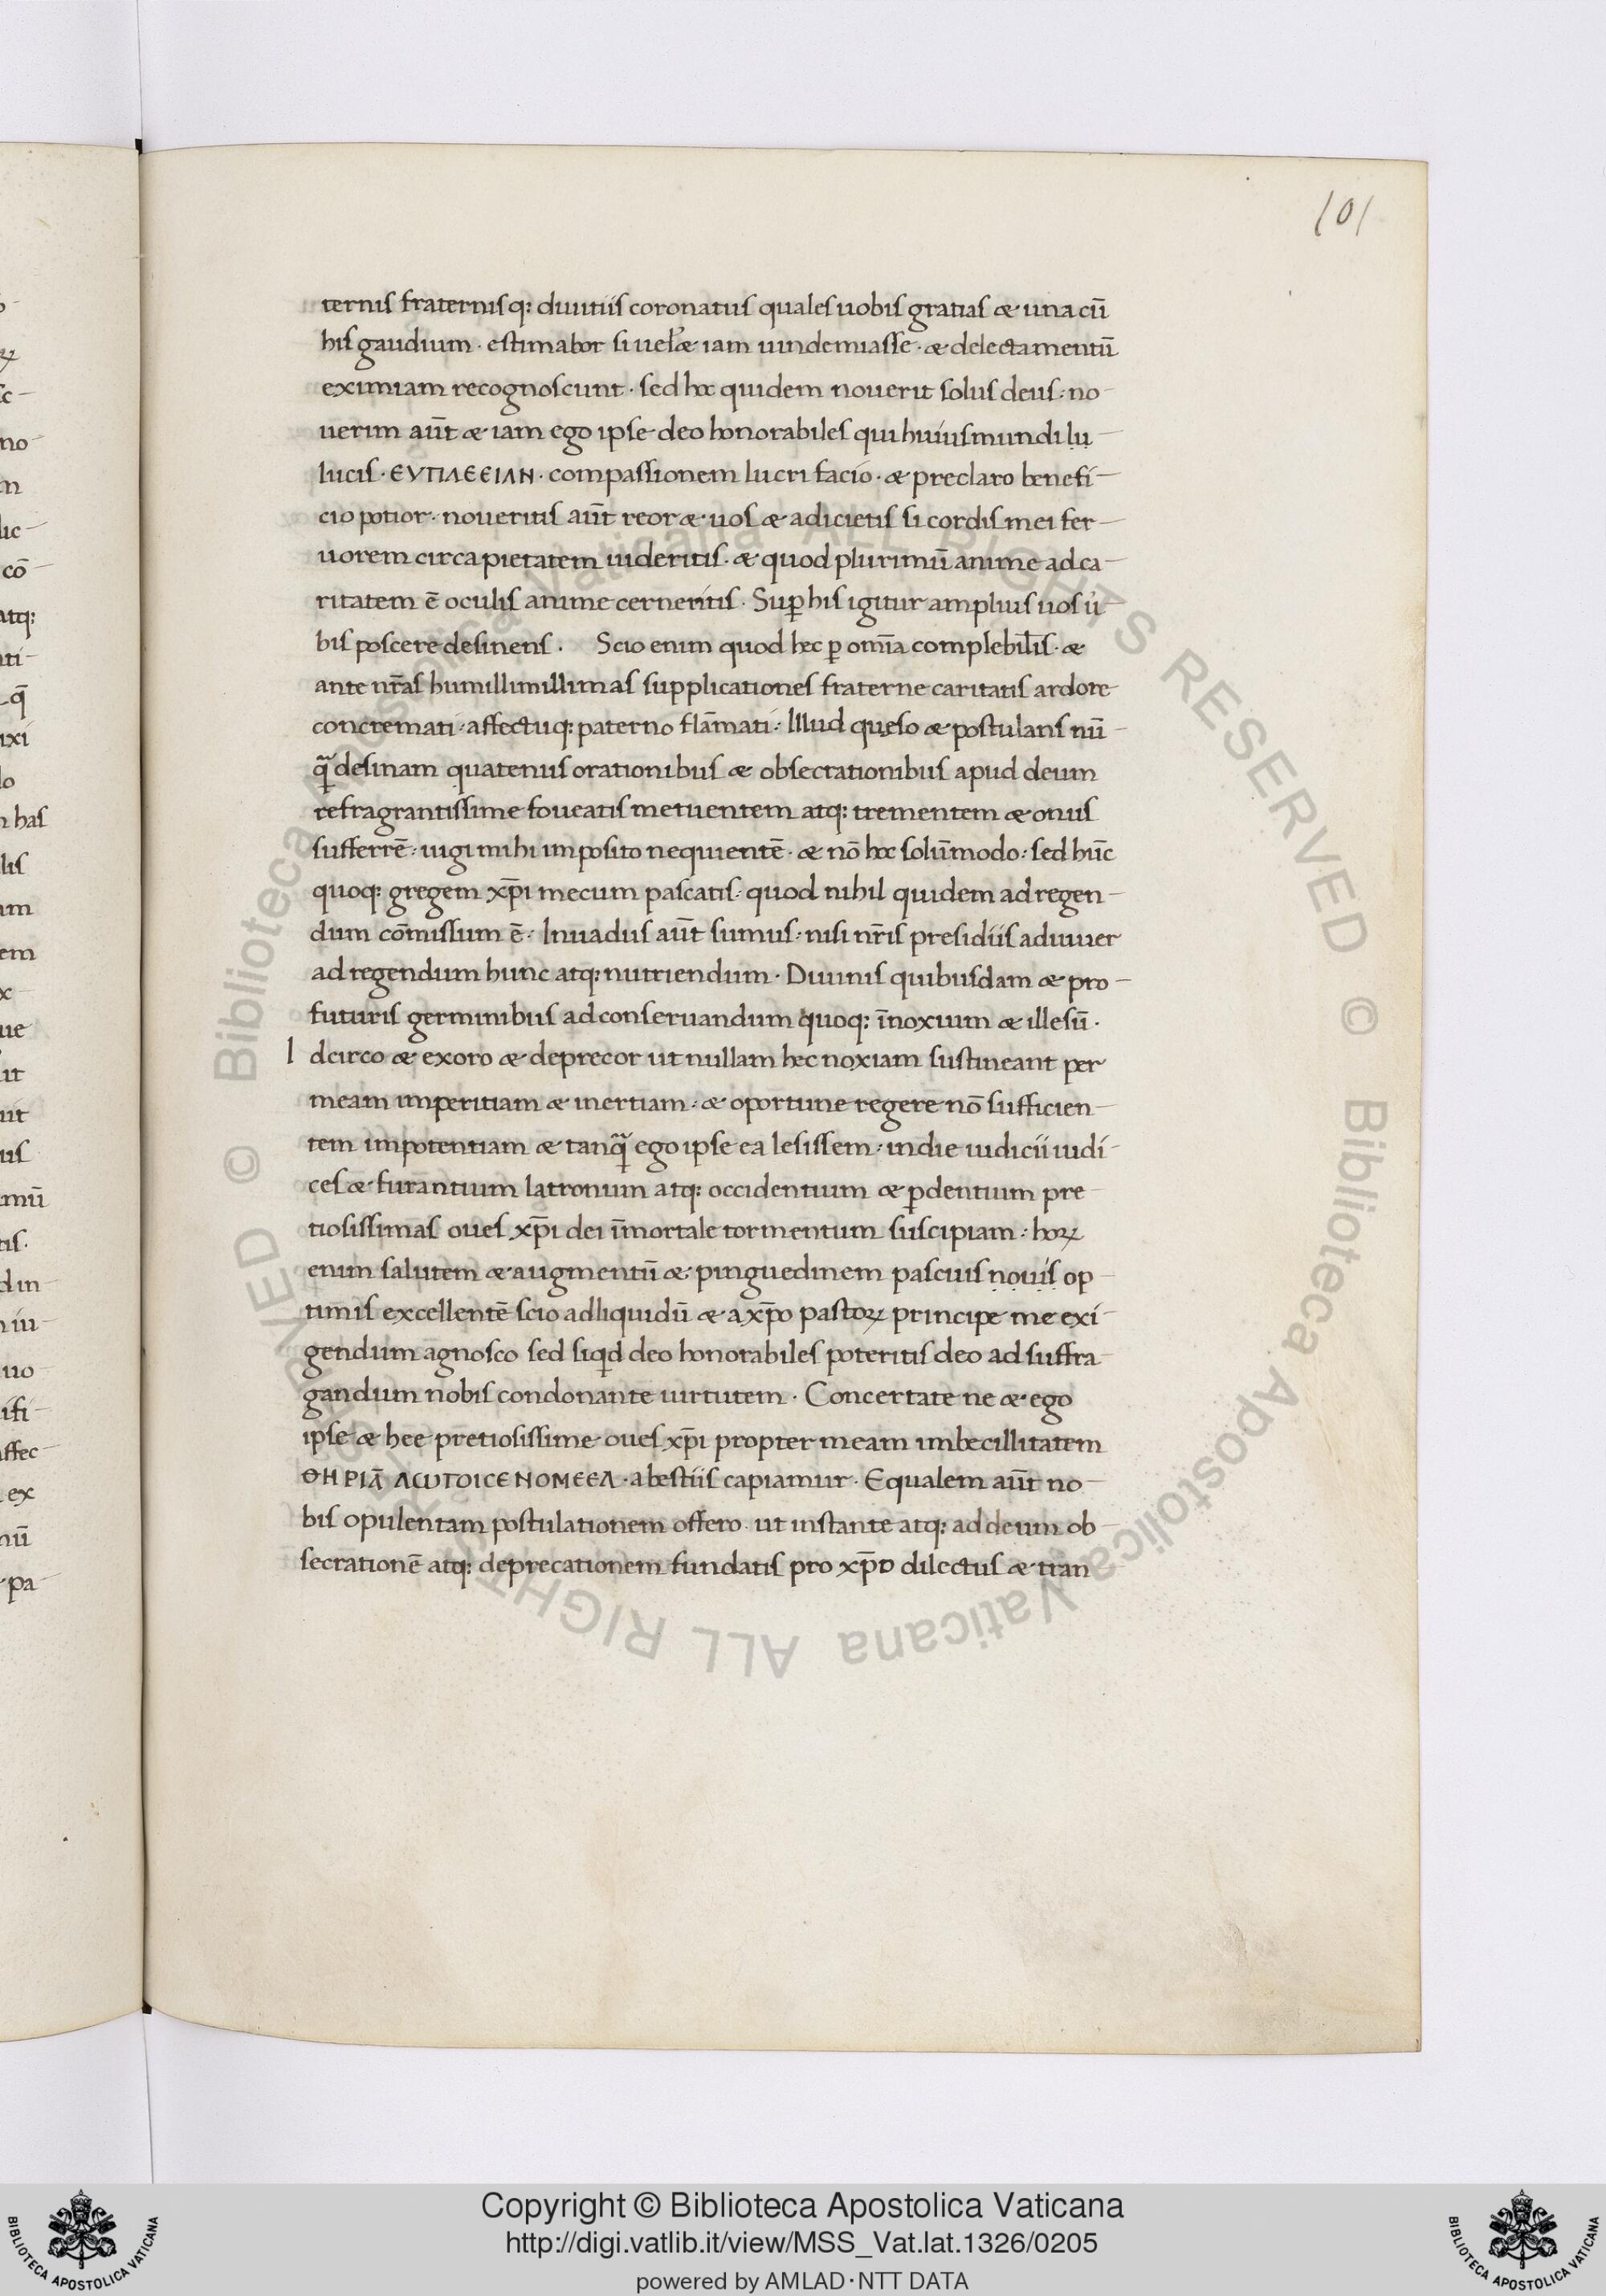 101
ternis fraternisq: diuitiis coronatus quales uobis gratias & una cū
his gaudium · estimabor si uel & iam uindemiasse · & delectamentū
eximiam recognoscunt · sed hoc quidem nouerit solus deus : no
uerim aūt & iam ego ipse deo honorabiles qui huius mundi lu
lucis · ΕΥΠΛΕΕΙΛΝ · compassionem lucri facio · & preclaro benefi
cio potior · noueritis aūt reor & uos & adicietis si cordis mei fer
uorem circa pietatem uideritis · & quod plurimū anime ad ca
ritatem ē oculis anime cerneritis · Suꝑ his igitur amplius uos u
bis poscere desinens · Scio enim quod hec ꝑ om̄ia complebil̄is · &
ante nr̄as humillimillimas supplicationes fraterne caritatis ardore
concremati · affectuq: paterno flāmati : Illud queso & postulans nū
ꝗ̄ desinam quatenus orationibus & obsecrationibus apud deum
refragrantissime foueatis metuentem atq: trementem & onus
sufferrē · uigi mihi imposito nequientē · & nō hoc solūmodo : sed hūc
quoq: gregem xp̄i mecum pascatis · quod nihil quidem ad regen
dum cōmissum ē · Inuadus aūt sumus : nisi nr̄is presidiis adiuuer
ad regendum hunc atq: nutriendum · Diuinis quibusdam & pro
futuris germinibus ad conseruandum quoq: īnoxium & illesū ·
I dcirco & exoro & deprecor ut nullam hec noxiam sustineant per
meam imperitiam & inertiam · & oportune regere nō sufficien
tem impotentiam & tanꝗ̄ ego ipse ea lesissem · in die iudicii iudi
ces & furantium latronum atq: occidentium & ꝑdentium pre
tiosissimas oues xp̄i dei īmortale tormentum suscipiam : hoꝝ
enim salutem & augmentū & pinguedinem pascuis nouis op
timis excellentē scio ad liquidū & a xp̄o pastoꝝ principe me exi
gendum agnosco sed siqd deo honorabiles poteritis deo ad suffra
gandum nobis condonante uirtutem · Concertate ne & ego
ipse & hee pretiosissime oues xp̄i propter meam imbecillitatem
ΘΗΡΙΛ̄ ΛΩΤΟΙCΕΝΟΜΕΕΛ · a bestiis capiamur · Equalem aūt no
bis opulentam postulationem offero ut instante atq: ad deum ob
secrationē atq: deprecationem fundatis pro xp̄o dilectus & tran
Copyright © Biblioteca Apostolica Vaticana
http://digi.vatlib.it/view/MSS_Vat.lat.1326/0205
powered by AMLAD·NTT DATA